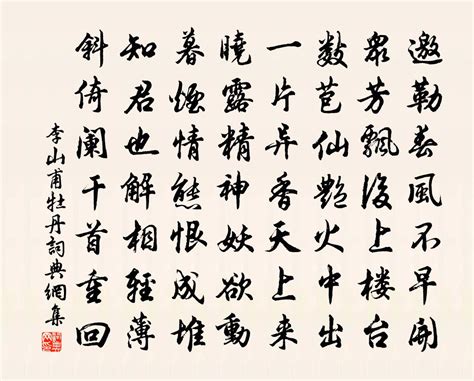 邀勒春風不早開
衆芳飄後上楼台
數苞仙艷火中出
一片异香天上来
曉露精神妖欲動
暮煙情態恨成堆
知君也解相輕薄
斜倚闌干首重回
李山甫牡丹詞典網集